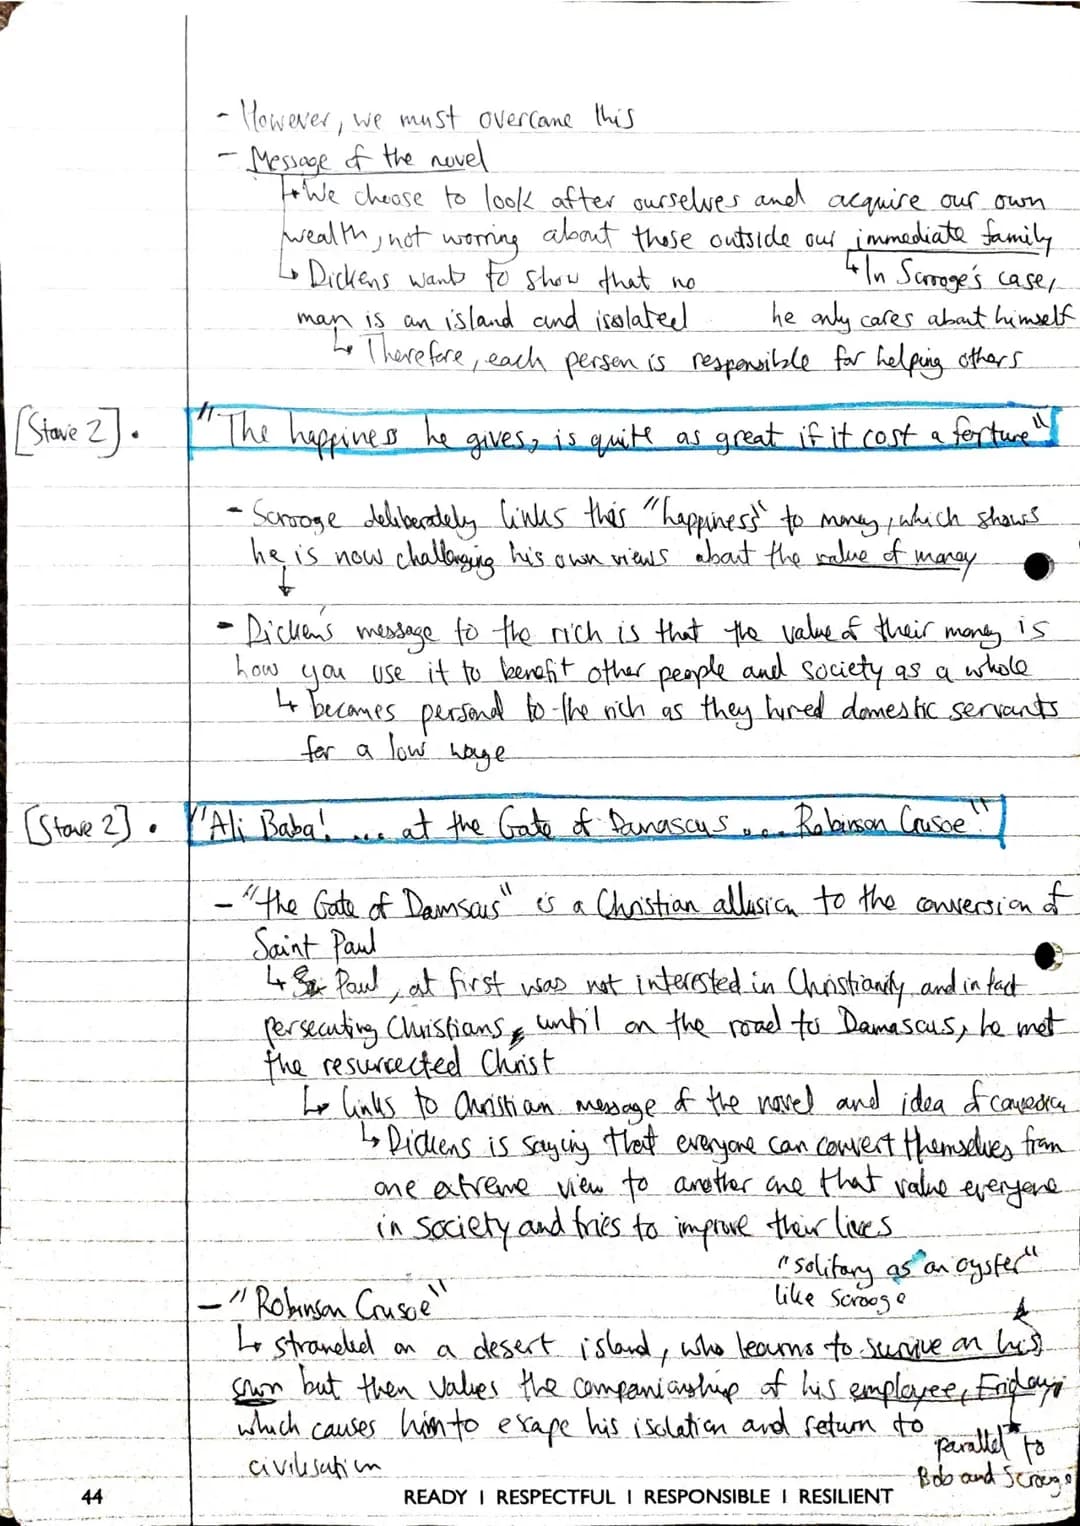 - However, we must overcome this
- Message of the novel
↳ We choose to look after ourselves and acquire our own
wealth, not worring about those outside our immediate family
↳ In Scrooge's case,
he only cares about himself
↳ Dickens wants to show that no
man is an island and isolated
↳ Therefore, each person is responsible for helping others
[Stave 2] • "The happiness he gives, is quite as great if it cost a fortune"
- Scrooge deliberately links this "happiness" to money, which shows
he is now challenging his own views about the value of money
↓
- Dickens' message to the rich is that the value of their money is
how you use it to benefit other people and society as a whole
↳ becomes personal to the rich as they hired domestic servants
for a low wage
[Stave 2] • "Ali Baba! .... at the Gate of Damascus .... Robinson Crusoe"
- "the Gate of Damsaus" is a Christian allusion to the conversion of
Saint Paul
↳ Paul, at first was not interested in Christianity and in fact
persecuting Christians, until on the road to Damascus, he met
the resurrected Christ
↳ links to Christian message of the novel and idea of
↳ Dickens is saying that everyone can convert themselves from
one extreme view to another one that value everyone
in society and tries to improve their lives
"solitary as an oyster"
like Scrooge
- "Robinson Crusoe"
↳ stranded on a desert island, who learns to survive on his
own but then values the companionship of his employee, Friday,
which causes him to escape his isolation and return to
civilisation
parallel to
Bob and Scrooge
44 READY | RESPECTFUL | RESPONSIBLE | RESILIENT